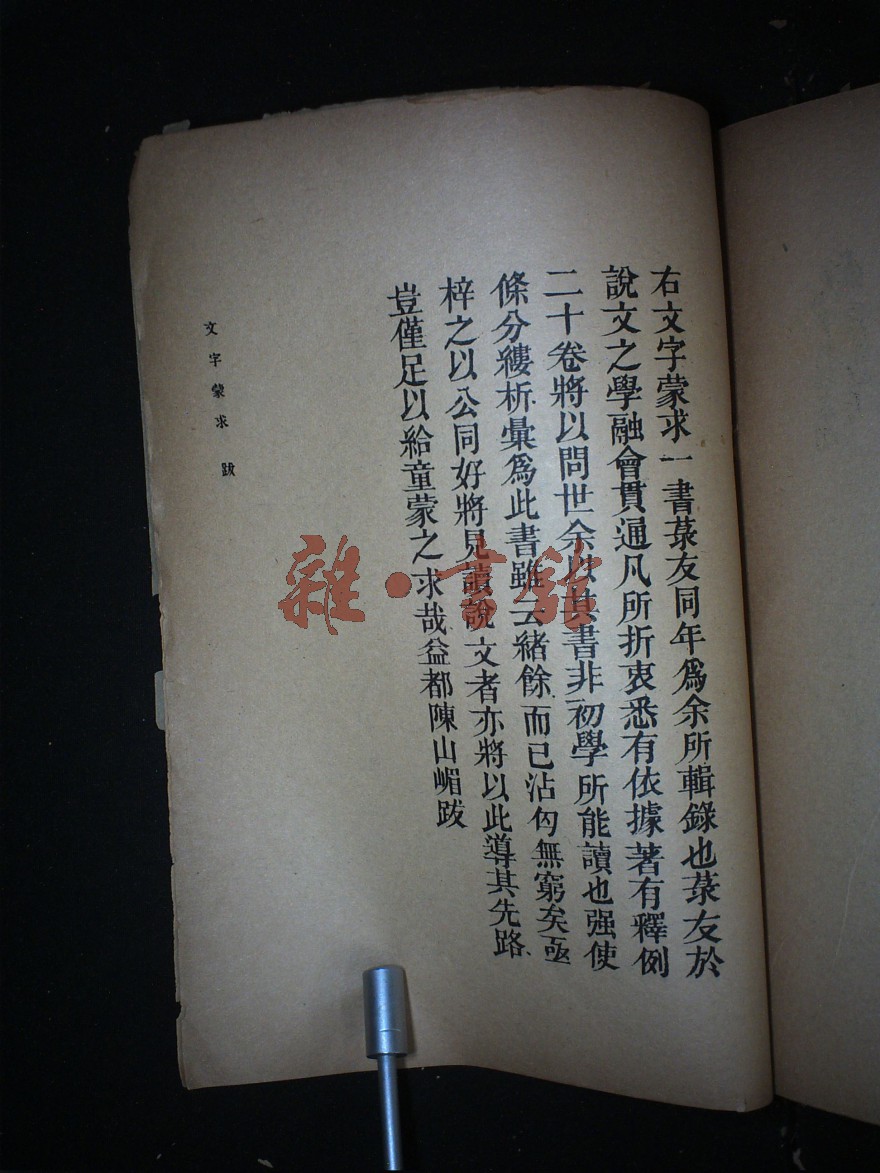 右文字蒙求一書菉友同年爲余所輯錄也菉友於
說文之學融會貫通凡所折衷悉有依據著有釋例
二十卷將以問世余以其書非初學所能讀也强使
條分縷析彙爲此書雖云緒餘而已沾匄無窮矣亟
梓之以公同好將見讀說文者亦將以此導其先路
豈僅足以給童蒙之求哉益都陳山嵋跋
文字蒙求 跋
雜·書館